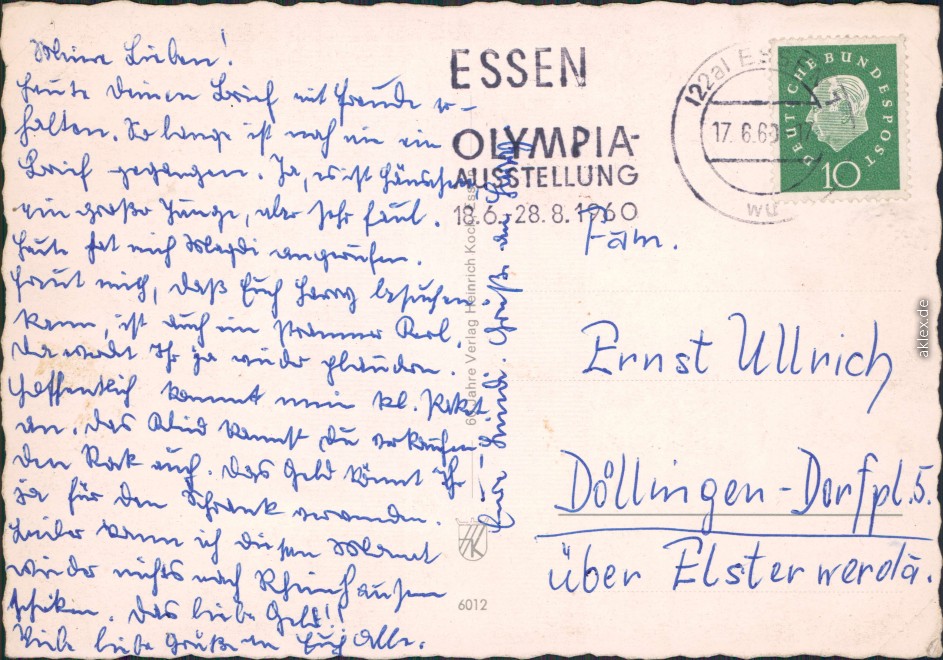 Meine Lieben!
Heute Deinen Brief mit Freude er-
halten. So lange ist noch nie ein
Brief gegangen. Ja, es ist
ein große Junge, aber sehr faul.
Heute hat mich Magdi angerufen.
Freut mich, daß Euch Harry besuchen
kann, ist auch ein strammer Kerl,
da werdet Ihr ja wieder plaudern.
Hoffentlich kommt mein kl. Paket
an. Das Kleid kannst Du verkaufen
den Rock auch. Das Geld könnt Ihr
ja für den Schrank verwenden.
Leider kann ich diesen Monat
wieder nichts nach Rheinhausen
schiken. Das liebe Geld!!
Viele liebe Grüße an Euch Alle.
Eure . Grüße an Harry
ESSEN
OLYMPIA-
AUSSTELLUNG
18.6.-28.8.1960
(22a) ESSEN
17.6.60.-17
wu
DEUTSCHE BUNDESPOST
10
Fam.
Ernst Ullrich
Döllingen-Dorfpl.5.
über Elsterwerda.
60 Jahre Verlag Heinrich Koch, Essen
HK
6012
aklex.de